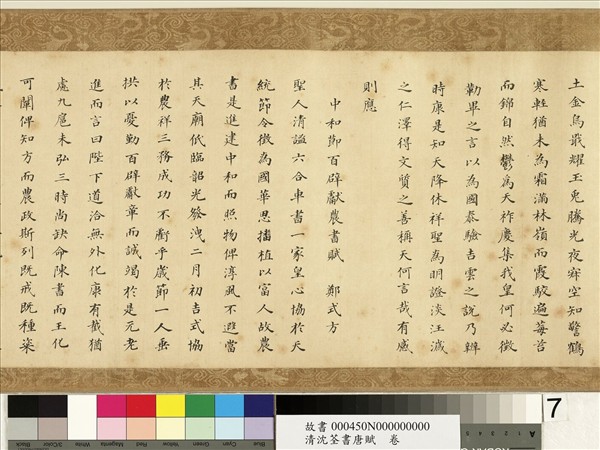 土金烏戢耀玉兔騰光夜寂空知警鶴
寒輕猶未為霜滿林嶺而霞駮遍莓苔
而錦自然鬱為天祚慶集我皇何必徵
勒畢之言以為國泰驗吉雲之說乃辨
時康是知天降休祥聖為明證淡汪濊
之仁澤得文質之善稱天何言哉有感
則應
中和節百辟獻農書賦 鄭式方
聖人清謐六合車書一家皇心協於天
統節令徵為國華思播植以富人故農
書是進建中和而照物俾淳風不遐當
其天廟低臨韶光發洩二月初吉式協
於農祥三務成功不虧乎歲節一人垂
拱以憂勤百辟獻章而誠竭於是元老
進而言曰陛下道洽無外化康有截猶
慮九扈未弘三時尚缺命陳書而王化
可闡俾知方而農政斯列既戒既種
7
故書 000450N000000000
清沈荃書唐賦 卷
Black
3/Color
White
Magenta
Red
Yellow
Green
Cyan
Blue
A